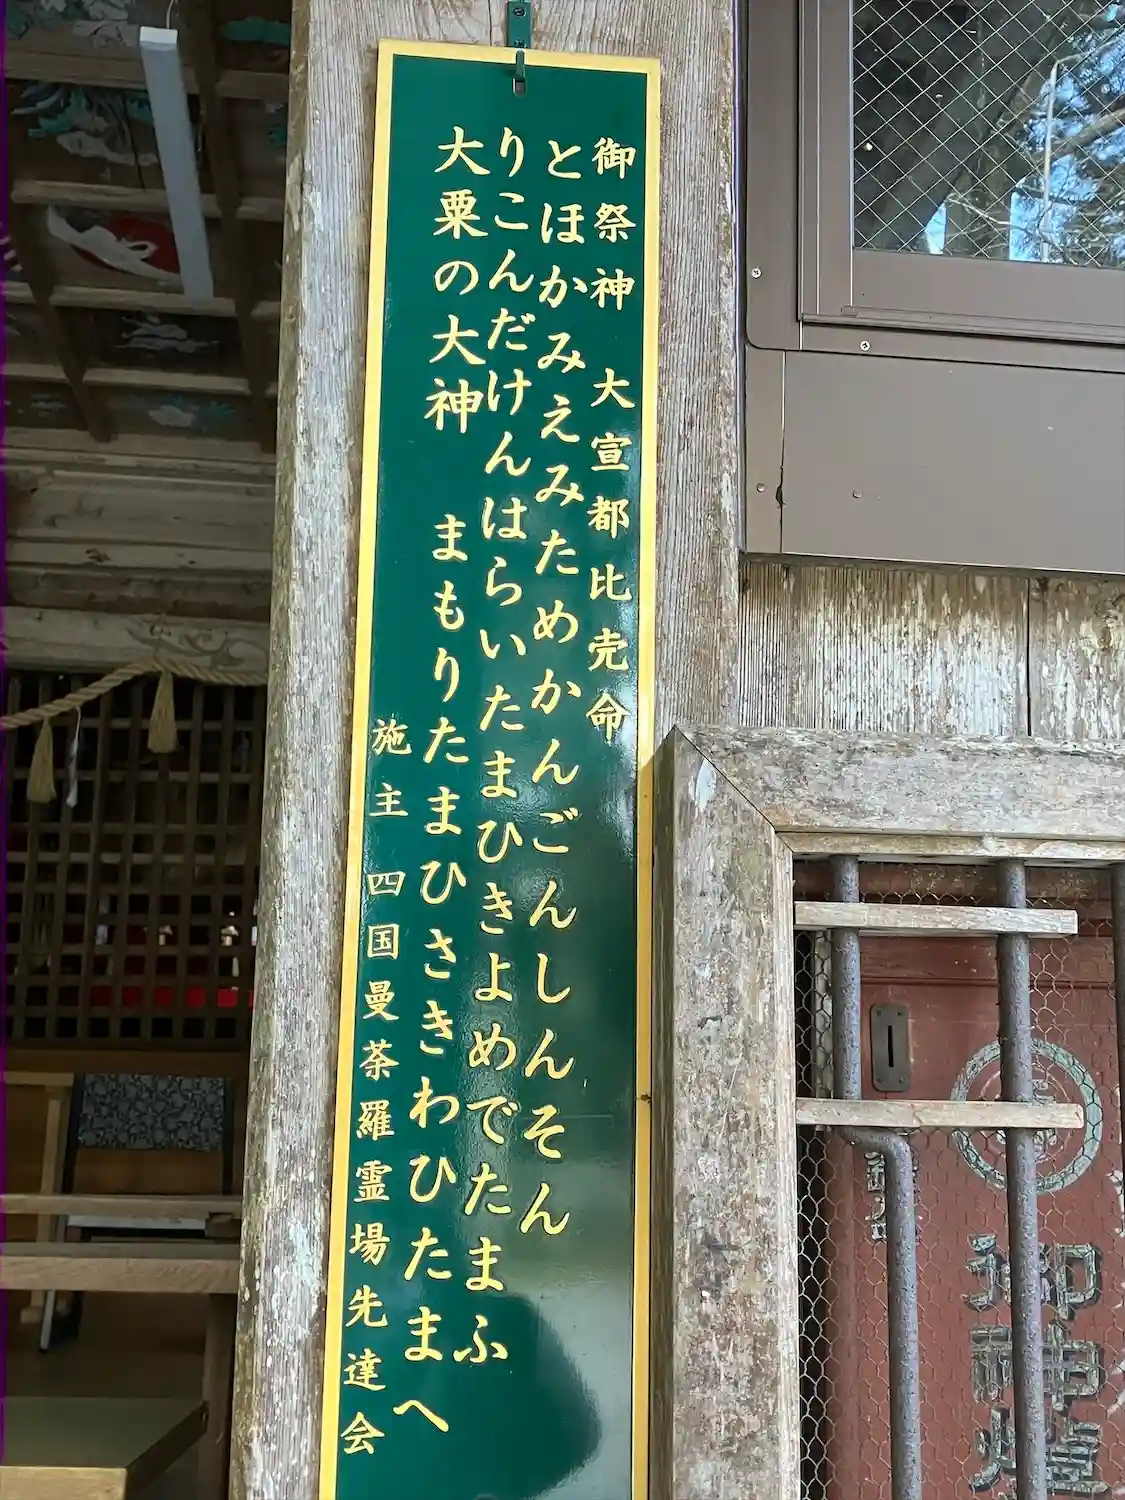 御祭神 大宣都比売命
とほかみえみためかんごんしんそん
りこんだけんはらいたまひきよめでたまふ
大粟の大神 まもりたまひさきわひたまへ
施主 四国曼荼羅霊場先達会
御神燈